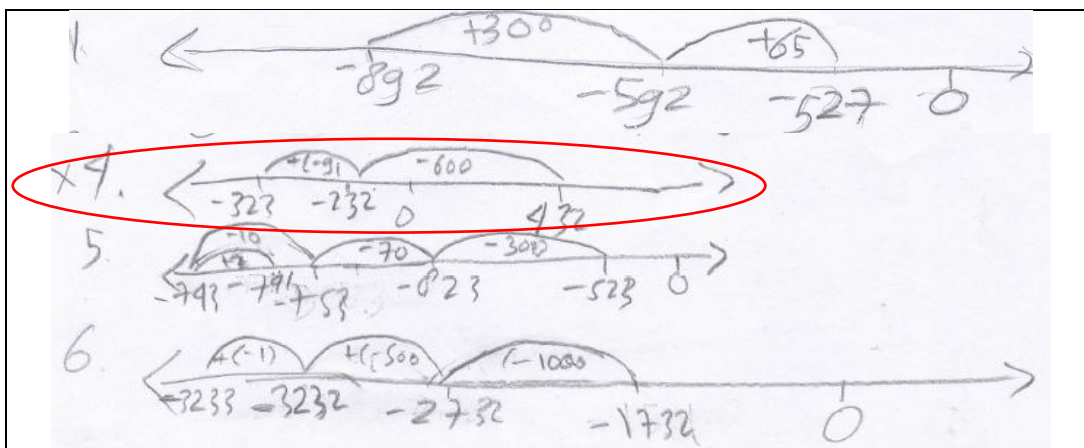 1.
+300 +65
-892 -592 -527 0
x 4.
+(-91 -600
-323 -232 0 432
5.
-10 -70 -300
-793 -791 -753 -823 -523 0
6.
+(-1) +(-500 (-1000
-3233 -3232 -2732 -1732 0